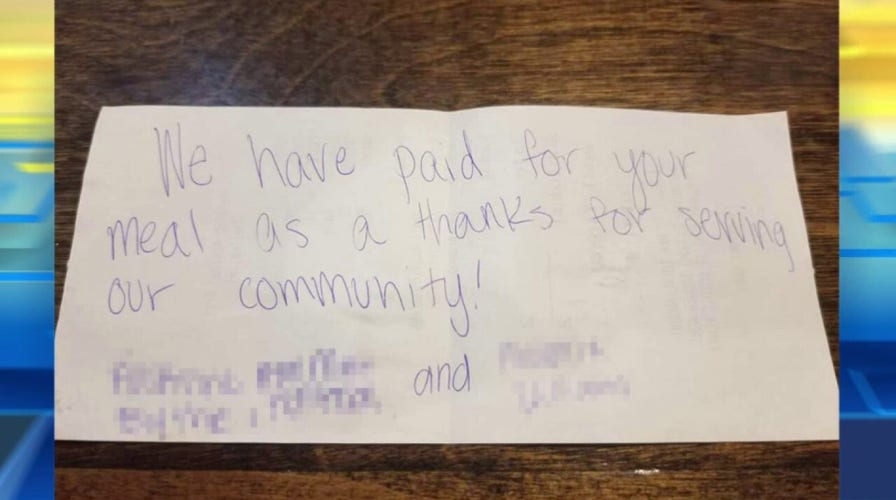 We have paid for your
meal as a thanks for serving
our community!
and